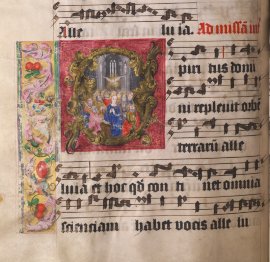 Aue lu ia. Ad missam in
piri tus domi
ni repleuit orbē
terrarū alle
luia et hoc qd̄ con ti net omnia
scienciam habet vocis alle lu